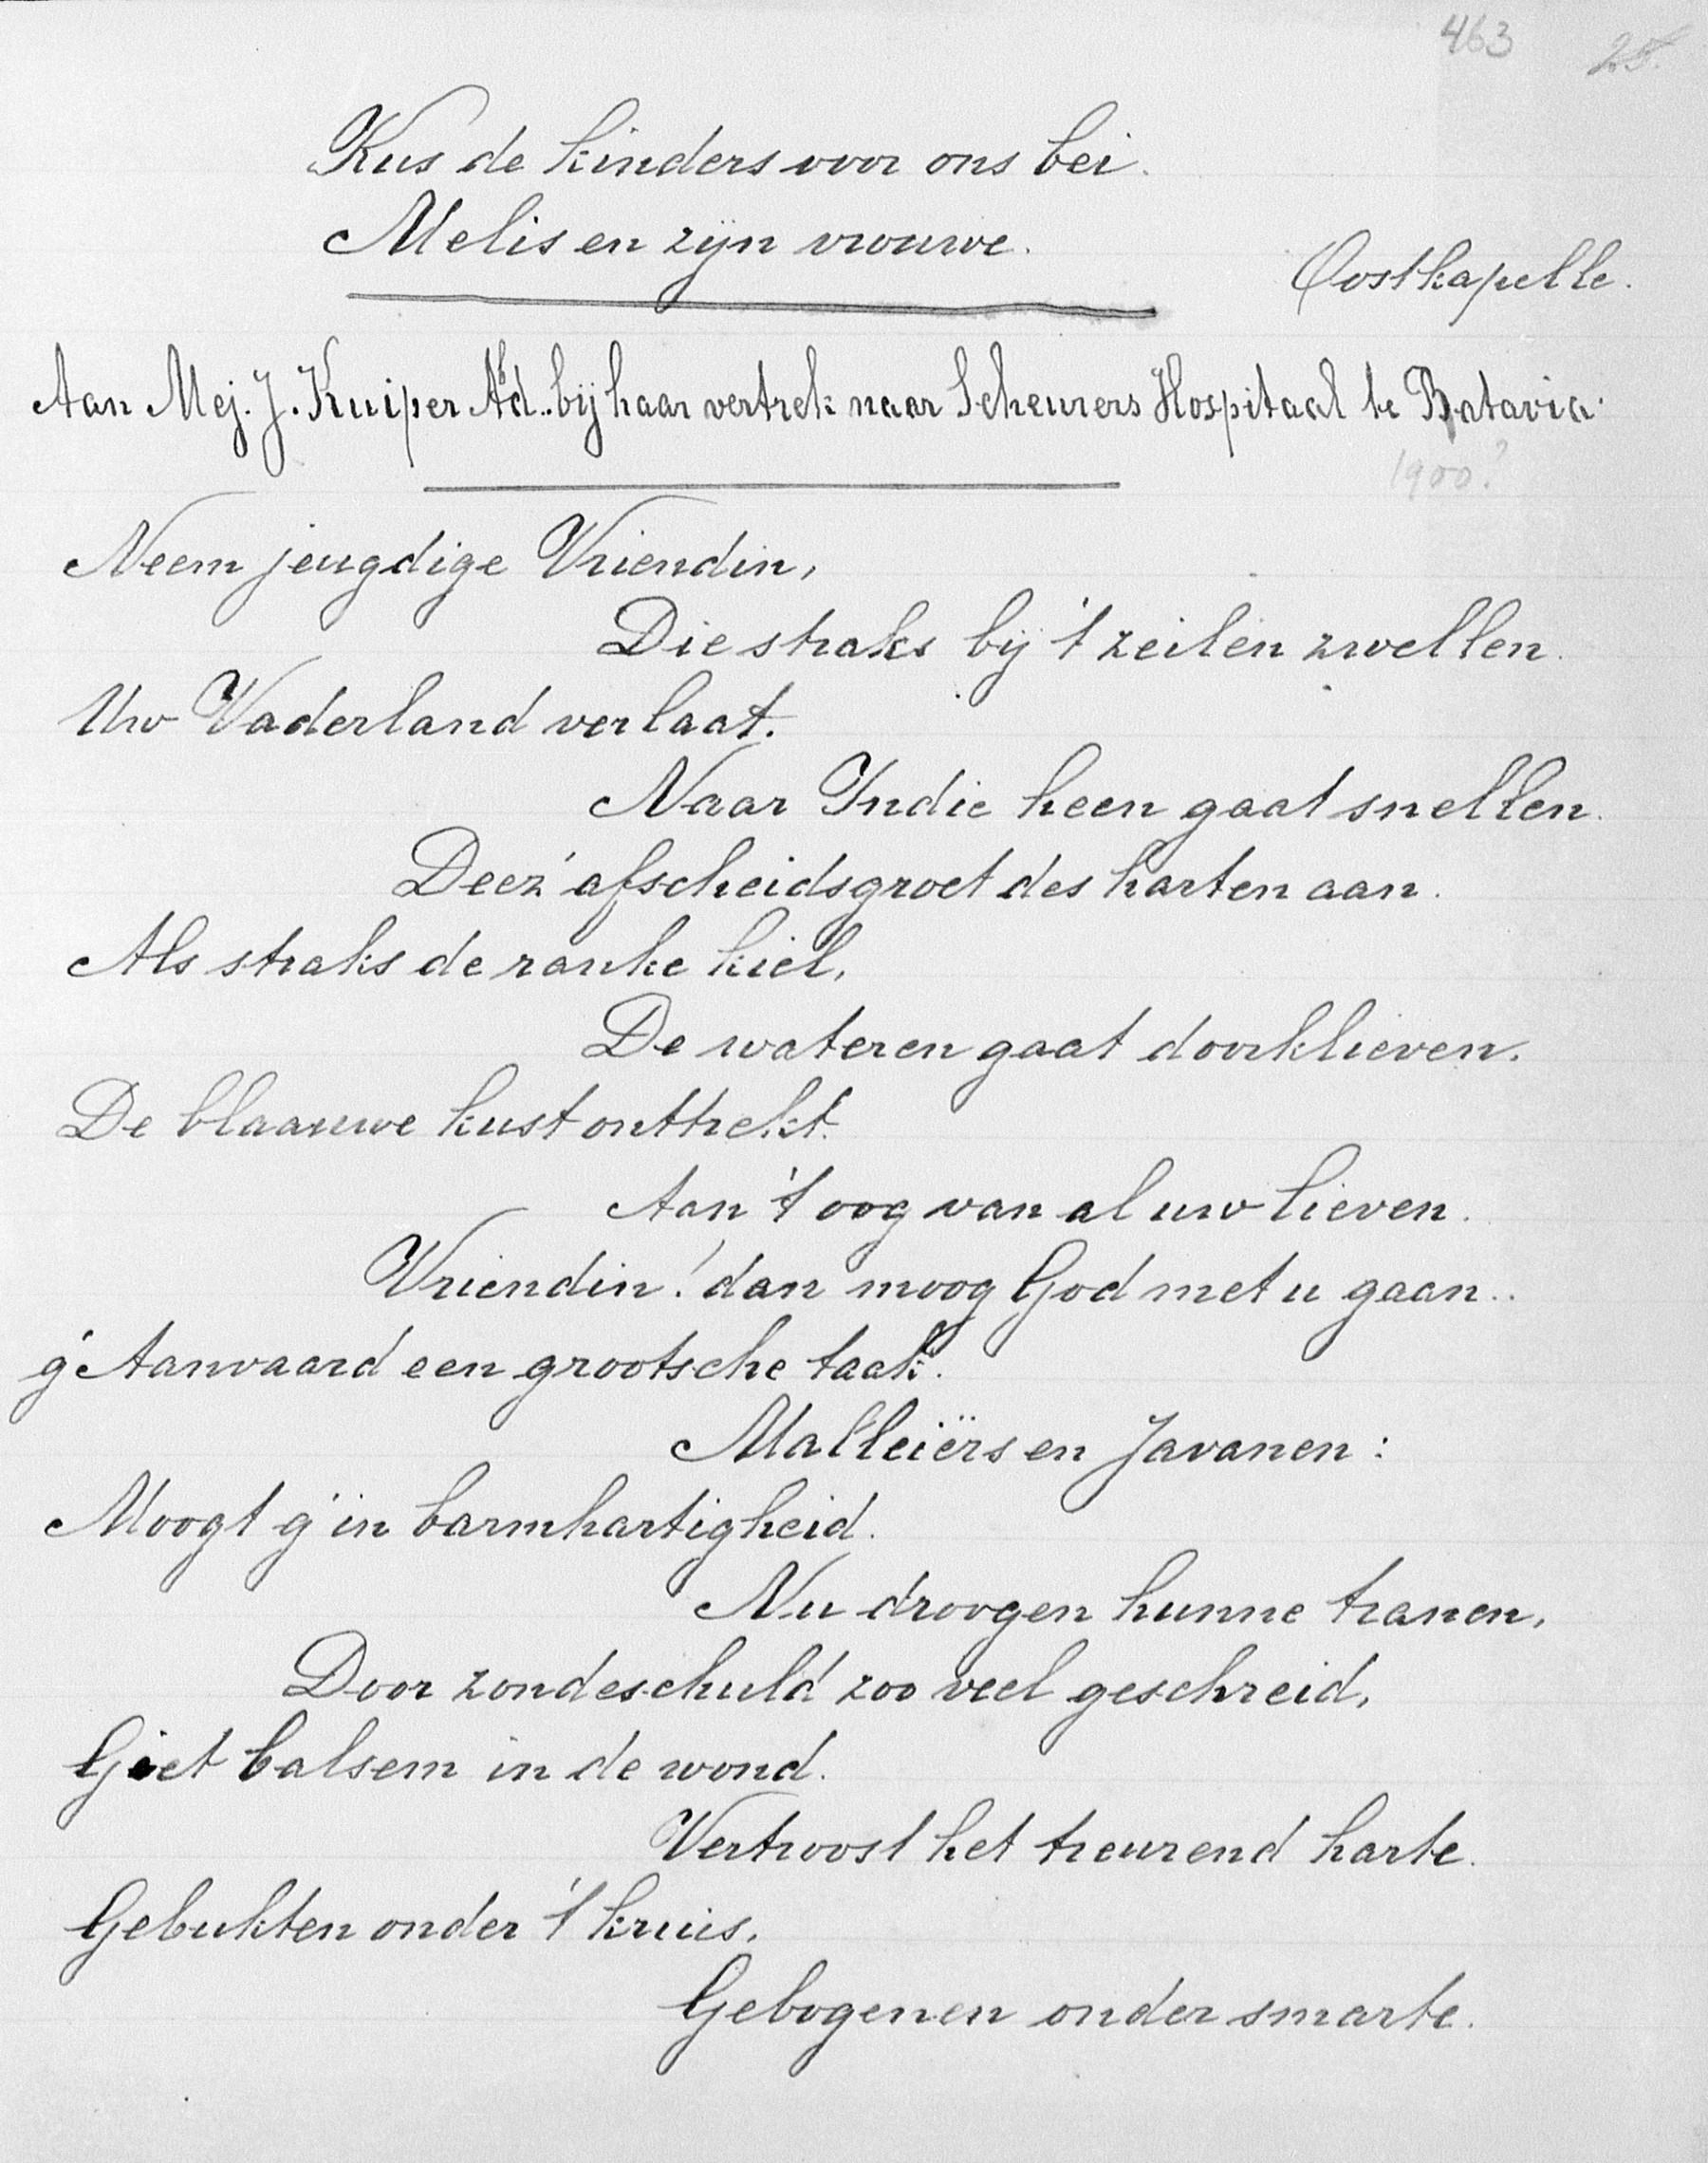 463 25.
Kus de kinders voor ons bei.
Melis en zijn vrouwe.
Oostkapelle.
Aan Mej. J. Kuiper Ad.. bij haar vertrek naar Scheurers Hospitaal te Batavia.
1900?
Neem jeugdige Vriendin,
Die straks bij 't zeilen zwellen.
Uw Vaderland verlaat.
Naar Indie heen gaat snellen.
Deez' afscheidsgroet des harten aan.
Als straks de ranke kiel,
De wateren gaat doorklieven.
De blaauwe kust onttrekt.
Aan 't oog van al uw lieven.
Vriendin! dan moog God met u gaan..
g' Aanvaard een grootsche taak.
Malleiërs en Javanen:
Moogt g' in barmhartigheid.
Nu droogen hunne tranen,
Door zondeschuld zoo veel geschreid,
Giet balsem in de wond.
Vertroost het treurend harte.
Gebukten onder 't kruis,
Gebogenen onder smarte.